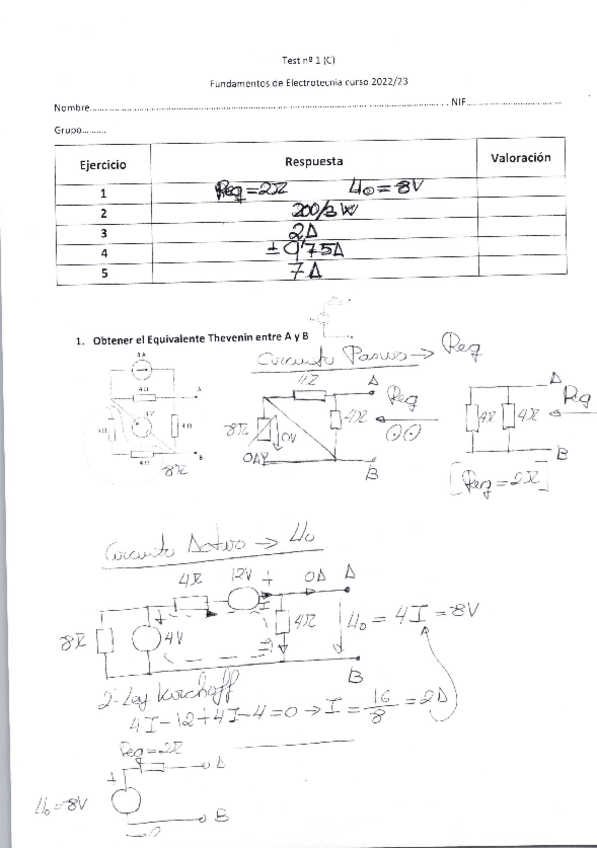 Test nº 1 (C)
Fundamentos de Electrotecnia curso 2022/23
Nombre NIF
Grupo
Ejercicio Respuesta Valoración
1 Req=2Ω U₀=8V
2 200/3 W
3 2A
4 ±0'75A
5 7A
1. Obtener el Equivalente Thevenin entre A y B
Circuito Pasivo → Req
3A
4Ω A
4V 4Ω
4Ω B
8Ω
4Ω A
8Ω 0V 4Ω Req
B
A
4Ω 4Ω Req
B
[Req=2Ω]
Circuito Activo → U₀
4Ω 12V + 0A A
8Ω 4V 4Ω U₀ = 4I = 8V
B
2ª Ley Kirchoff
4I-12+4I-4=0 → I = 16/8 = 2A
Req=2Ω
+ A
U₀=8V
B